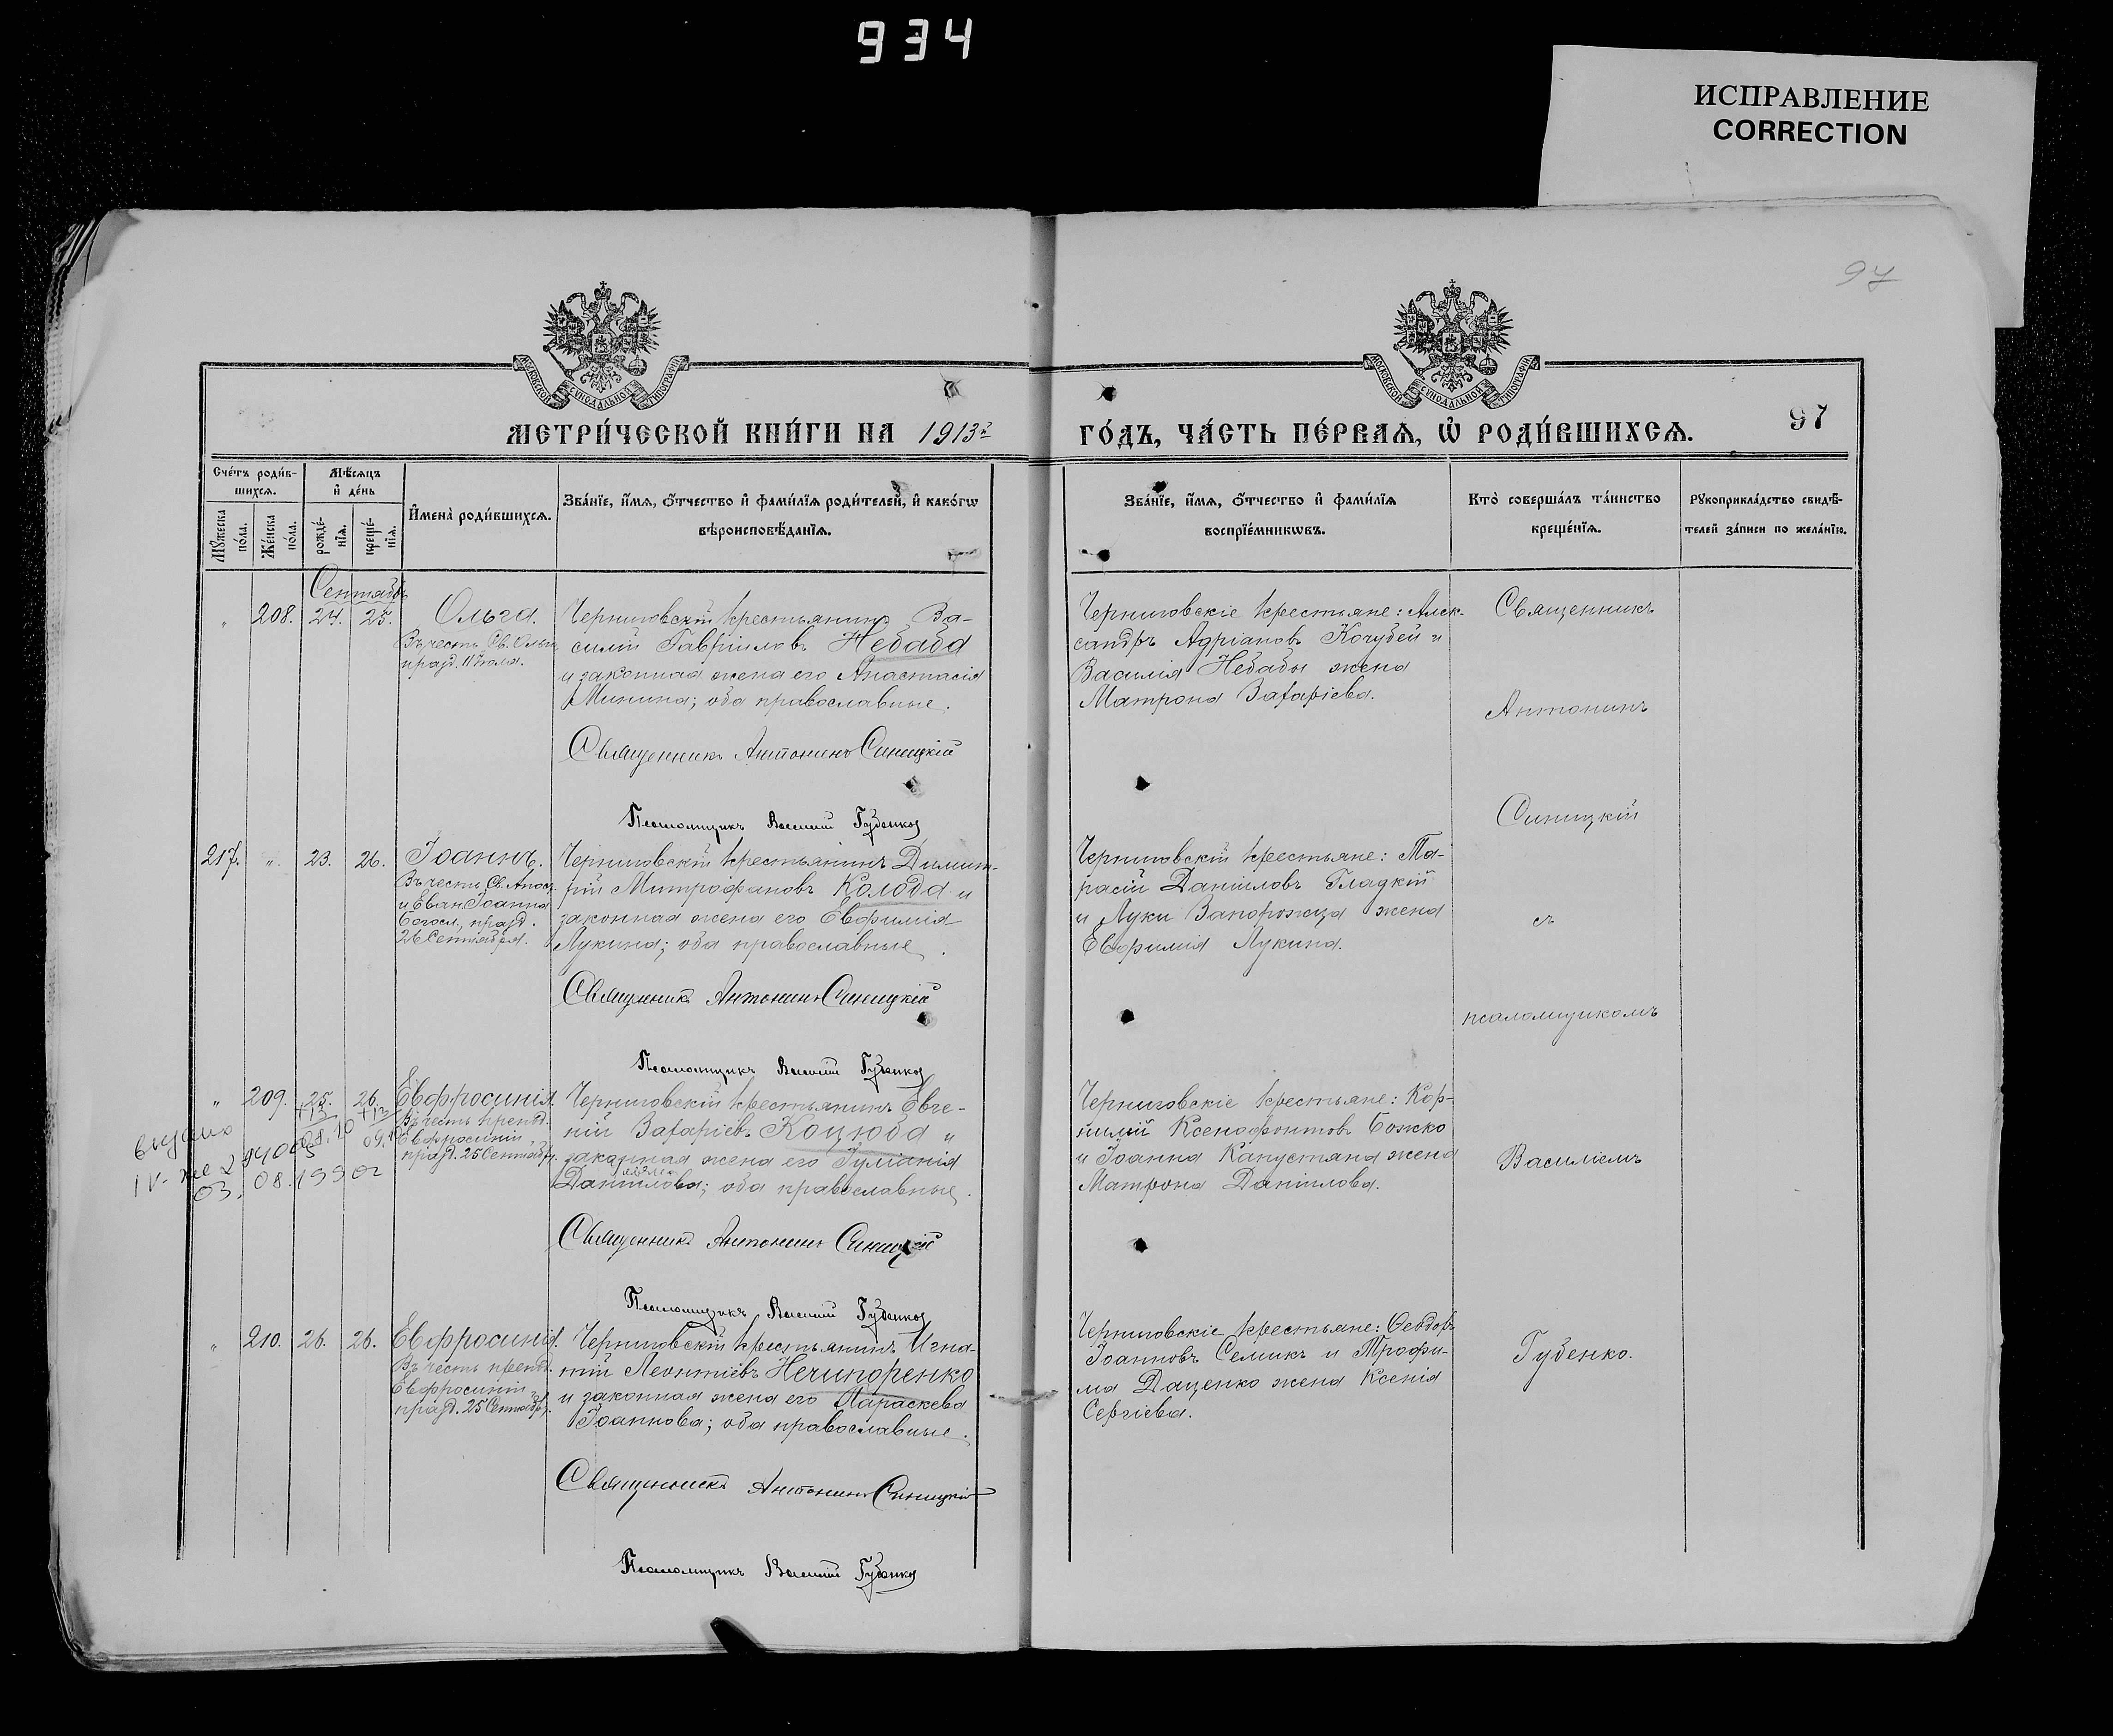 934
ИСПРАВЛЕНИЕ
CORRECTION
97
МОСКОВСКОЙ СѴНОДАЛЬНОЙ ТИПОГРАФІИ
МОСКОВСКОЙ СѴНОДАЛЬНОЙ ТИПОГРАФІИ
МЕТРИ́ЧЕСКОЙ КНИ́ГИ НА 1913 г
ГО́ДЪ, ЧА́СТЬ ПЕ́РВАЯ, Ѡ҆ РОДИ́ВШИХСЯ.
97
Сче́тъ роди́в-
шихся.
Мѣ́сяцъ
и҆ де́нь
Му́жеска
по́ла.
Же́нска
по́ла.
рожде́-
нїя.
креще́-
нїя.
И҆мена̀ роди́вшихся.
Зва́нїе, и҆́мя, о҆́тчество и҆ фами́лїя роди́телей, и҆ како́гѡ
вѣроисповѣ́данїя.
Зва́нїе, и҆́мя, о҆́тчество и҆ фами́лїя
воспрїе́мникѡвъ.
Кто̀ соверша́лъ та́инство
креще́нїя.
Рꙋкоприкла́дство свидѣ́-
телей за́писи по жела́нїю.
Сентябрь
" 208. 24. 25. Ольга.
Въ честь Св. Ольги,
празд. 11 Іюля.
Черниговскій крестьянинъ Ва-
силій Гавріиловъ Небаба
и законная жена его Анастасія
Минина; оба православные.
Священникъ Антонинъ Синицкій
Псаломщикъ Василій Губенко
Черниговскіе крестьяне: Алек-
сандръ Адріановъ Кочубей и
Василія Небабы жена
Матрона Захаріева.
Священникъ
Антонинъ
Синицкій
217. " 23. 26. Іоаннъ.
Въ честь Св. Апост.
и Еван. Іоанна
Богосл., празд.
26 Сентября.
Черниговскій крестьянинъ Димит-
рій Митрофановъ Колода и
законная жена его Евфимія
Лукина; оба православные.
Священникъ Антонинъ Синицкій
Псаломщикъ Василій Губенко
Черниговскій крестьяне: Та-
расій Даніиловъ Гладкій
и Луки Запорожца жена
Евфимія Лукина.
съ
псаломщикомъ
" 209. 25. 26. Евфросинія.
+13 +13
08.10 09.10
Въ честь препод.
Евфросиніи,
празд. 25 Сентября.
видано
03.08.1990г
Черниговскій крестьянинъ Евге-
ній Захаріевъ Коцюба и
законная жена его Іуліанія
Даніилова; оба православные.
Священникъ Антонинъ Синицкій
Псаломщикъ Василій Губенко
Черниговскіе крестьяне: Кор-
нилій Ксенофонтовъ Божко
и Іоанна Капустяна жена
Матрона Даніилова.
Василіемъ
" 210. 26. 26. Евфросинія.
Въ честь препод.
Евфросиніи,
празд. 25 Сентябр.
Черниговскій крестьянинъ Игна-
тій Леонтіевъ Нечипоренко
и законная жена его Параскева
Іоаннова; оба православные.
Священникъ Антонинъ Синицкій
Псаломщикъ Василій Губенко
Черниговскіе крестьяне: Ѳеодоръ
Іоанновъ Семикъ и Трофи-
ма Даценко жена Ксенія
Сергіева.
Губенко.